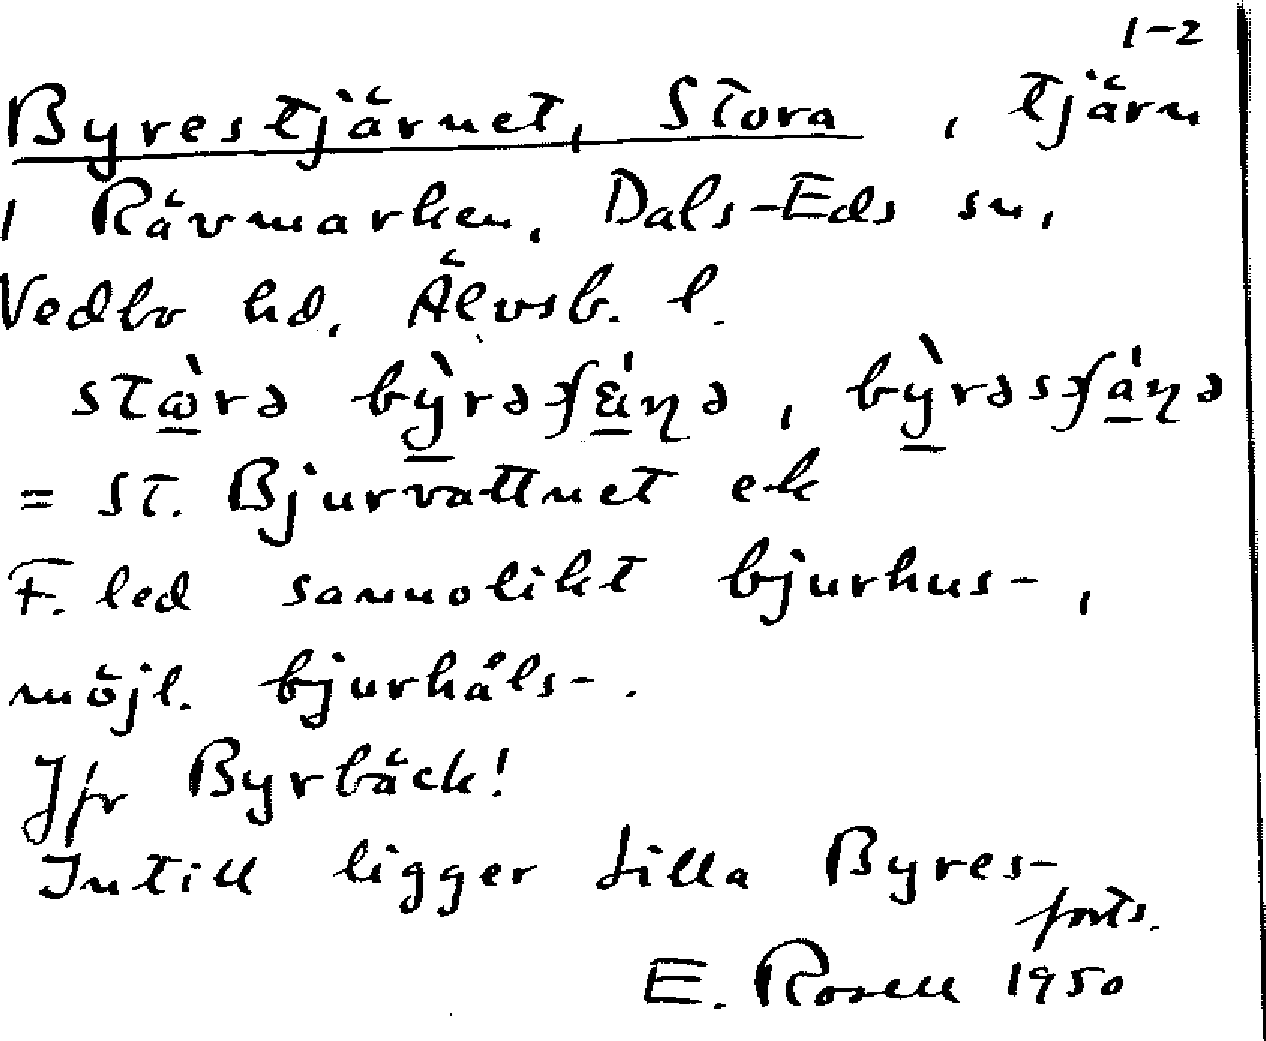 1-2
Byrestjärnet, Stora, tjärn
i Rävmarken, Dals-Eds sn,
Vedbo hd, Älvsb. l.
= St. Bjurvattnet ek
F. led sannolikt bjurhus-,
möjl. bjurhåls-.
Jfr Byrbäck!
Intill ligger Lilla Byres-
forts.
E. Rosell 1950